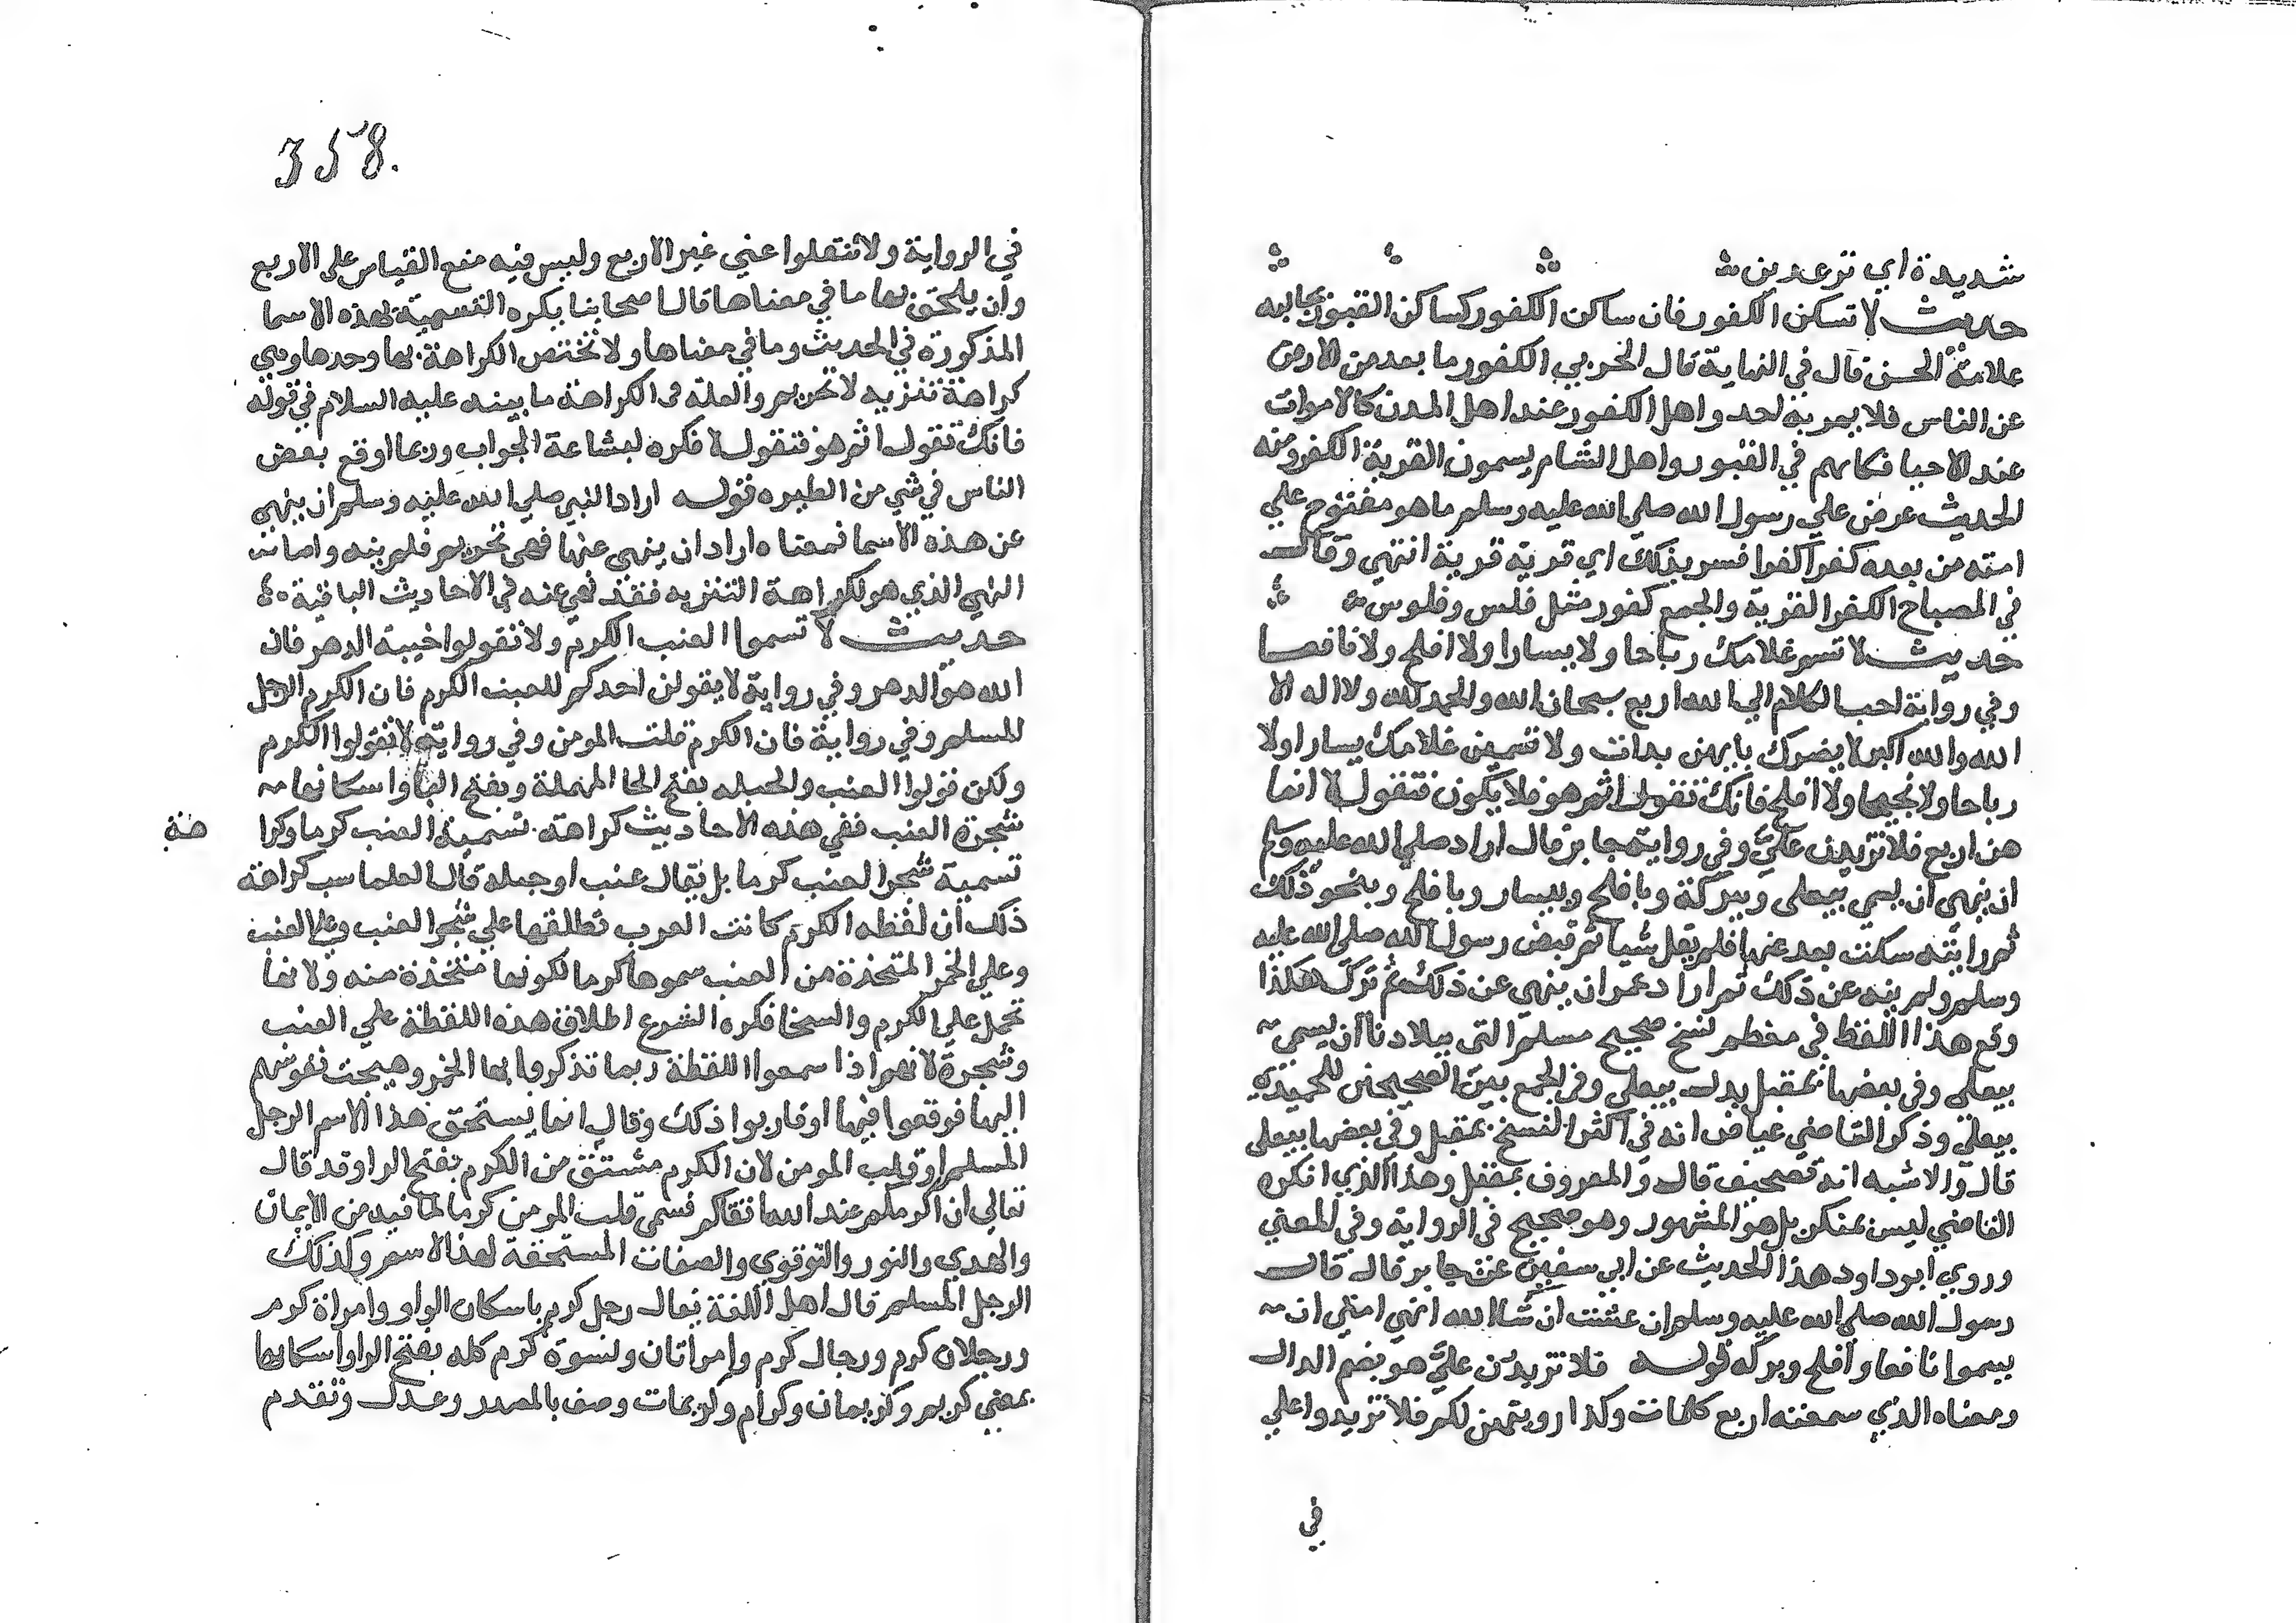 شديدة اي ترعدين
حديث لا تسكن الكفور فان ساكن الكفور كساكن القبور بجانبه
علامة الحسن قال في النهاية قال الحربي الكفور ما بعد من الارض
عن الناس فلا يمر به احد واهل الكفور عند اهل المدن كالاموات
عند الاحيا فكانهم في القبور واهل الشام يسمون القرية الكفر ومنه
الحديث عرض علي رسول الله صلي الله عليه وسلم ما هو مفتوح علي
امته من بعده كفرا كفرا فسر بذلك اي قرية قرية انتهي وقال
في المصباح الكفر القرية والجمع كفور مثل فلس وفلوس
حديث لا تسم غلامك رباحا ولا يسارا ولا افلح ولا نافعا
وفي رواية احب الكلام الي الله اربع سبحان الله والحمد لله ولا اله الا
الله والله اكبر لا يضرك بايهن بدات ولا تسمين غلامك يسارا ولا
رباحا ولا نجيحا ولا افلح فانك تقول اثم هو فلا يكون فتقول لا انما
هن اربع فلا تزيدن علي وفي رواية جابر قال اراد صلي الله عليه وسلم
ان ينهي ان يسمي بيعلى وببركة وبافلح وبيسار وبافلح وبنحو ذلك
ثم رايته سكت بعد عنها فلم يقل شيا ثم قبض رسول الله صلي الله عليه
وسلم ولم ينه عن ذلك ثم اراد عمر ان ينهي عن ذلك ثم تركه هكذا
وقع هذا اللفظ في معظم نسخ صحيح مسلم التي ببلادنا ان يسمي
بيعلى وفي بعضها بمقبل بدل بيعلي وفي الجمع بين الصحيحين للحميدي
بيعلي وذكر القاضي عياض انه في اكثر النسخ بمقبل وفي بعضها بيعلى
قال والاشبه انه تصحيف قال والمعروف بمقبل وهذا الذي انكره
القاضي ليس بمنكر بل هو المشهور وهو صحيح في الرواية وفي المعني
وروي ابو داود هذا الحديث عن ابي سفين عن جابر قال قال
رسول الله صلي الله عليه وسلم ان عشت ان شا الله انهي امتي ان
يسموا نافعا وافلح وبركه قوله فلا تزيدن علي هو بضم الدال
ومعناه الذي سمعته اربع كلمات وكذا رويتهن لكم فلا تزيدوا علي
في
358.
في الرواية ولا تنقلوا عني غير الاربع وليس فيه منع القياس علي الاربع
وان يلحق بها ما في معناها قال اصحابنا يكره التسمية بهذه الاسما
المذكورة في الحديث وما في معناها ولا تختص الكراهة بها وحدها وهي
كراهة تنزيه لا تحريم والعلة في الكراهة ما بينه عليه السلام في قوله
فانك تقول اثم هو فتقول لا فكره لبشاعة الجواب وربما اوقع بعض
الناس في شي من الطيره قوله اراد النبي صلي الله عليه وسلم ان ينهي
عن هذه الاسما فمعناه اراد ان ينهي عنها فهي تحريم فلم ينه واما
النهي الذي هو لكراهة التنزيه فقد نهي عنه في الاحاديث الباقية
حديث لا تسموا العنب الكرم ولا تقولوا خيبة الدهر فان
الله هو الدهر وفي رواية لا يقولن احدكم للعنب الكرم فان الكرم الرجل
المسلم وفي رواية فان الكرم قلب المومن وفي رواية لا تقولوا الكرم
ولكن قولوا العنب والحبله بفتح الحا المهملة وبفتح البا واسكانها
شجرة العنب ففي هذه الاحاديث كراهة تسمية العنب كرما وكرا
هة
تسمية شجر العنب كرما بل يقال عنب او حبله قال العلما سبب كراهة
ذلك ان لفظه الكرم كانت العرب تطلقها علي شجر العنب وعلي العنب
وعلي الخمر المتخذة من العنب سموها كرما لكونها متخذة منه ولانها
تحمل علي الكرم والسخا فكره الشرع اطلاق هذه اللفظة علي العنب
وشجرة لانهم اذا سمعوا اللفظة ربما تذكروا بها الخمر وهيجت نفوسهم
اليها فوقعوا فيها او قاربوا ذلك وقال انما يستحق هذا الاسم الرجل
المسلم او قلب المومن لان الكرم مشتق من الكرم بفتح الرا وقد قال
تعالي ان اكرمكم عند الله اتقاكم فسمي قلب المومن كرما لما فيه من الايمان
والهدي والنور والتوقوي والصفات المستحقة لهذا الاسم وكذلك
الرجل المسلم قال اهل اللغة يقال رجل كريم باسكان الراو وامراة كرم
ورجلان كرم ورجال كرم وامراتان ونسوة كرم كله بفتح الرا واسكانها
بمعني كريم وكريمان وكرام وكريمات وصف بالمصدر وعدل وتقدم